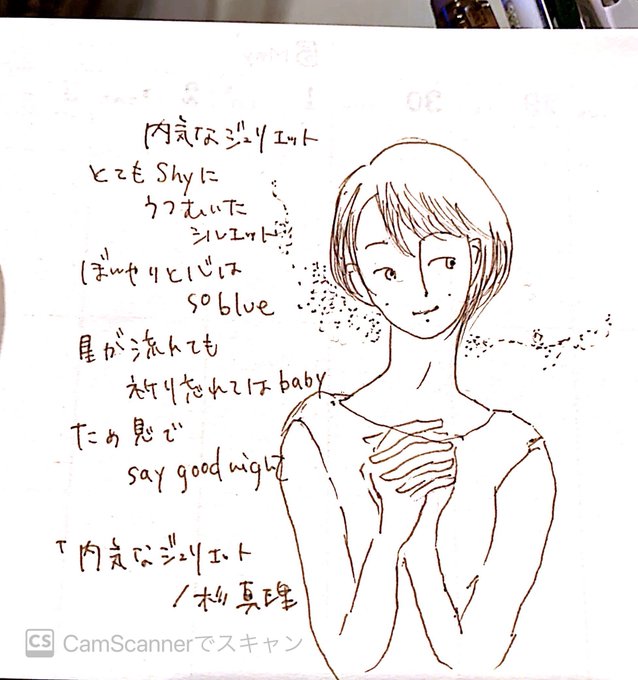 内気なジュリエット
とてもShyに
うつむいた
シルエット
ぼんやりと心は
so blue
星が流れても
祈り忘れてはbaby
ため息で
say good night
「内気なジュリエット
/杉真理
CS CamScannerでスキャン